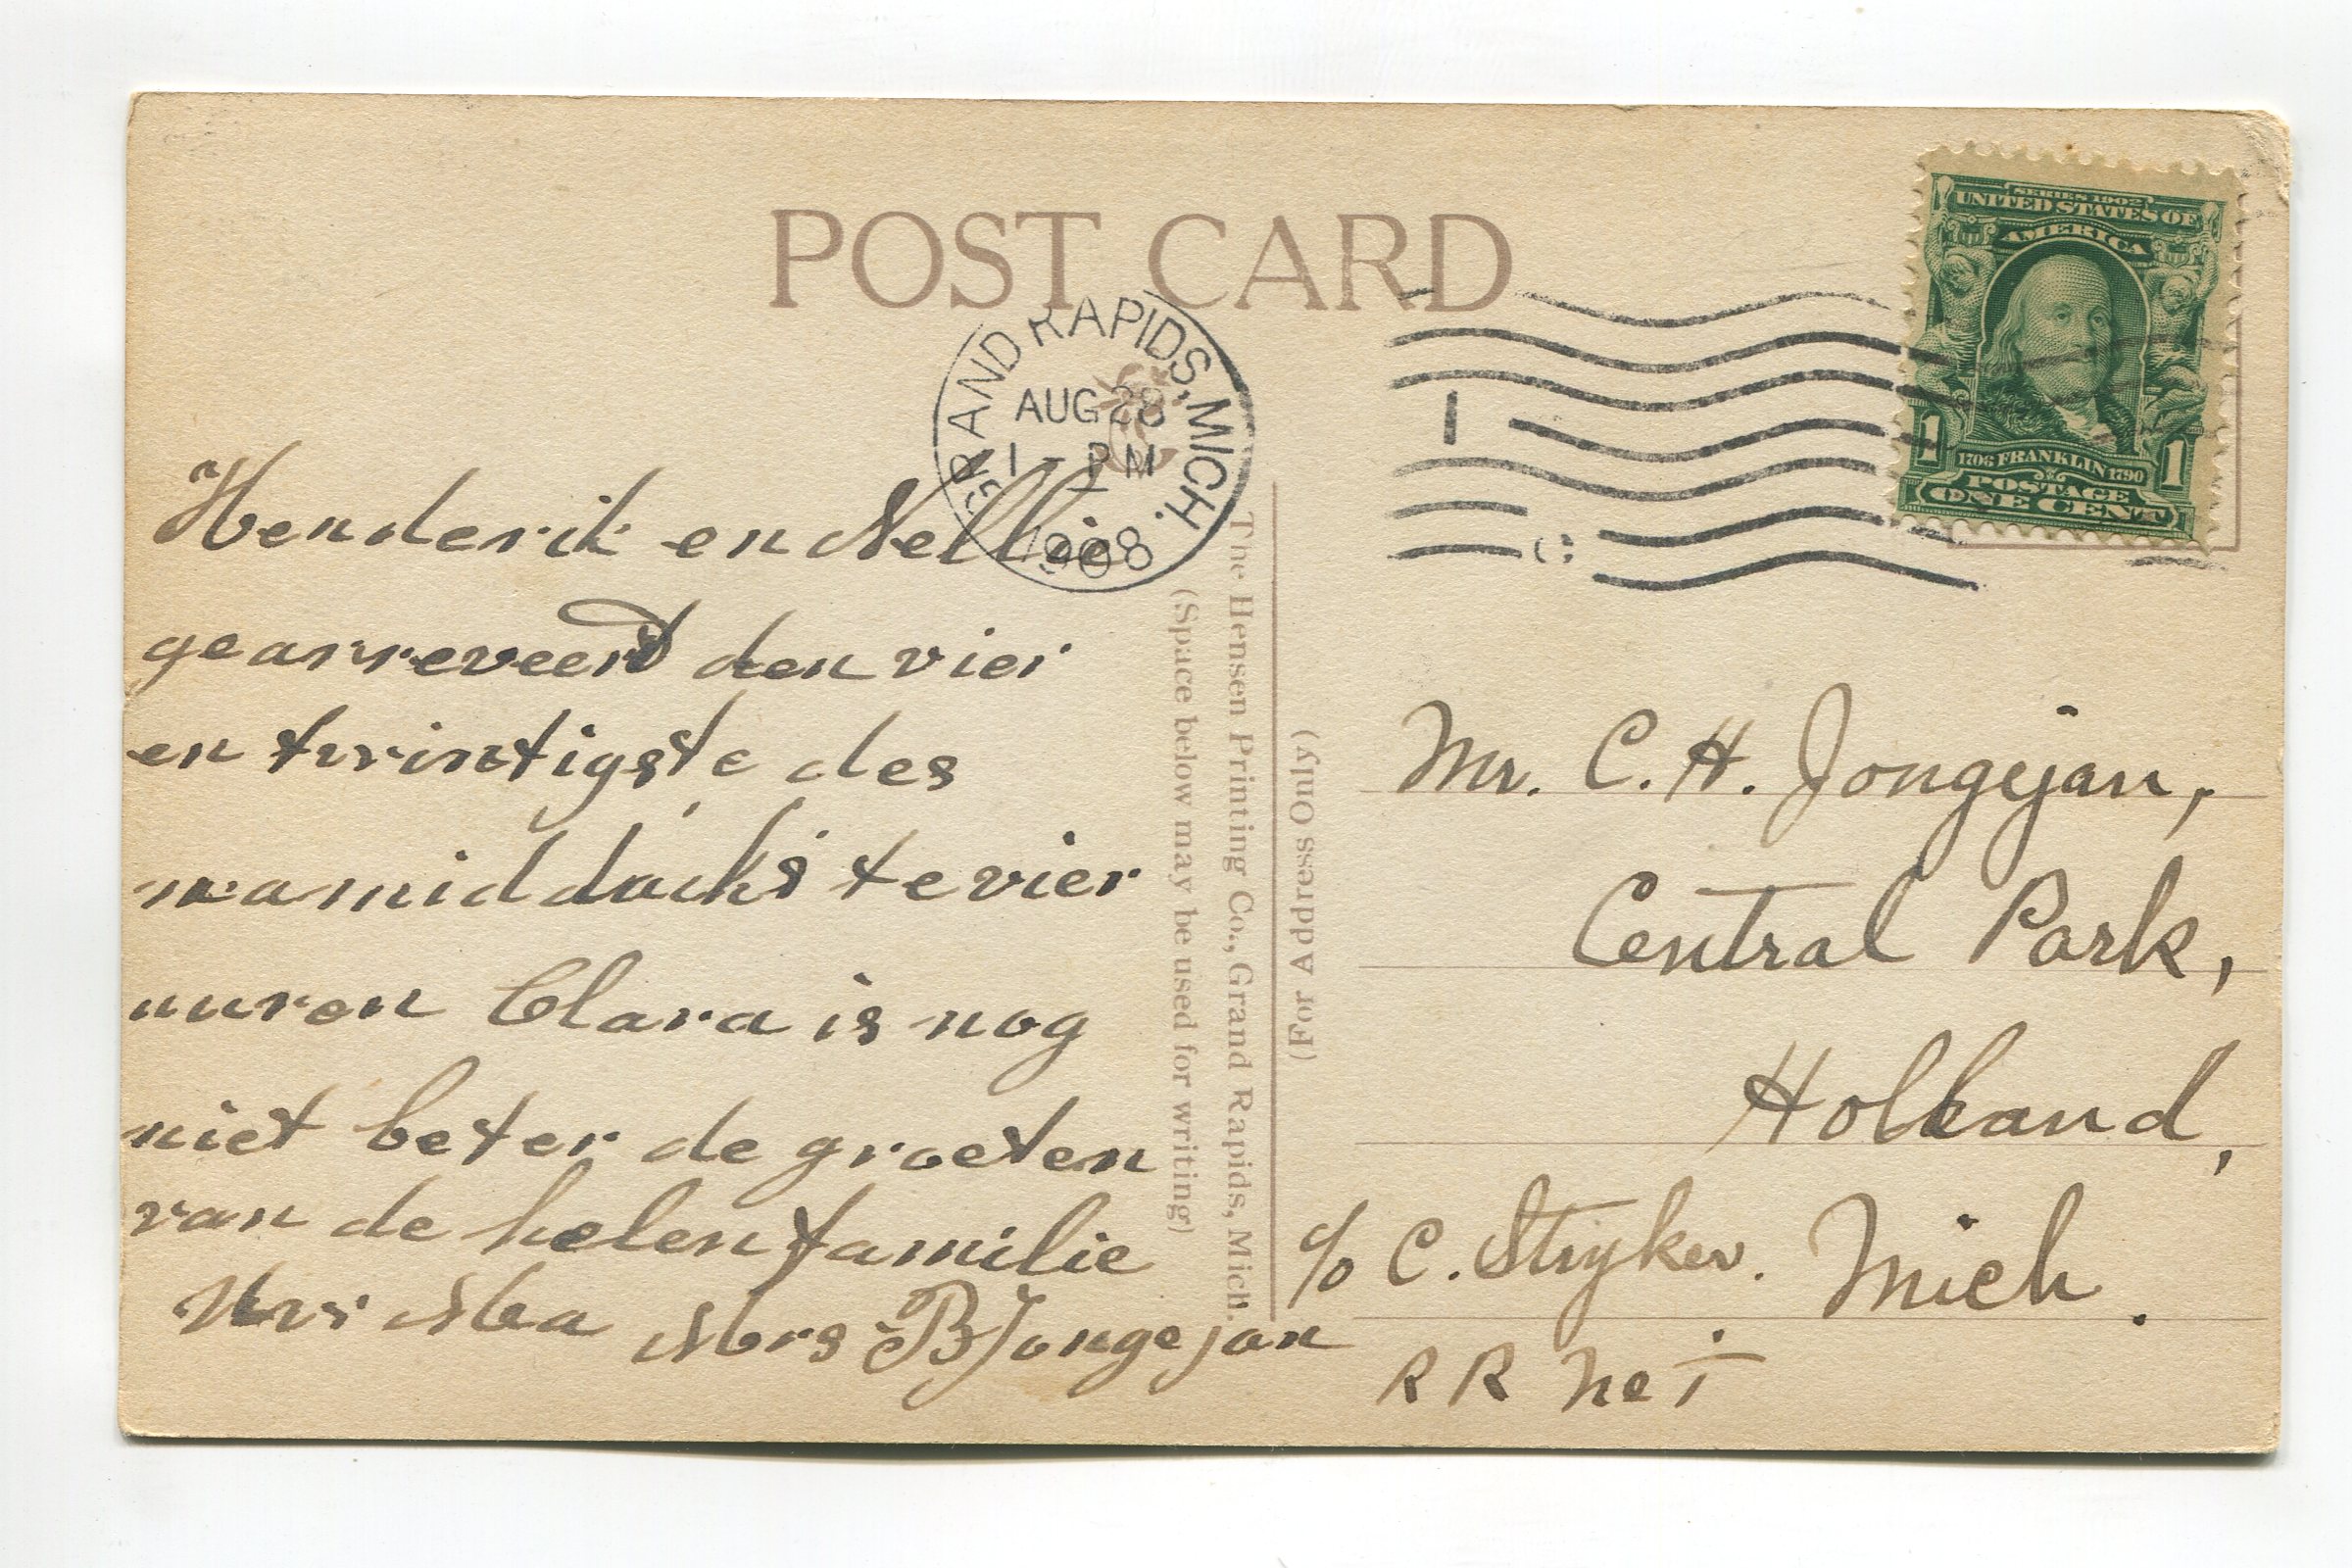 POST CARD
GRAND RAPIDS, MICH.
AUG 28
1 - PM
1908
1
SERIES 1902
UNITED STATES OF
AMERICA
1 1706 FRANKLIN 1790 1
POSTAGE
ONE CENT
Henderik en Nellie
gearreveerd den vier
en twintigste des
namiddachs te vier
uuren Clara is nog
niet beter de groeten
van de helen familie
Mrs B Jongejan
The Hensen Printing Co., Grand Rapids, Mich.
(Space below may be used for writing)
(For Address Only)
Mr. C. H. Jongejan,
Central Park,
Holland,
c/o C. Stryker. Mich.
R R